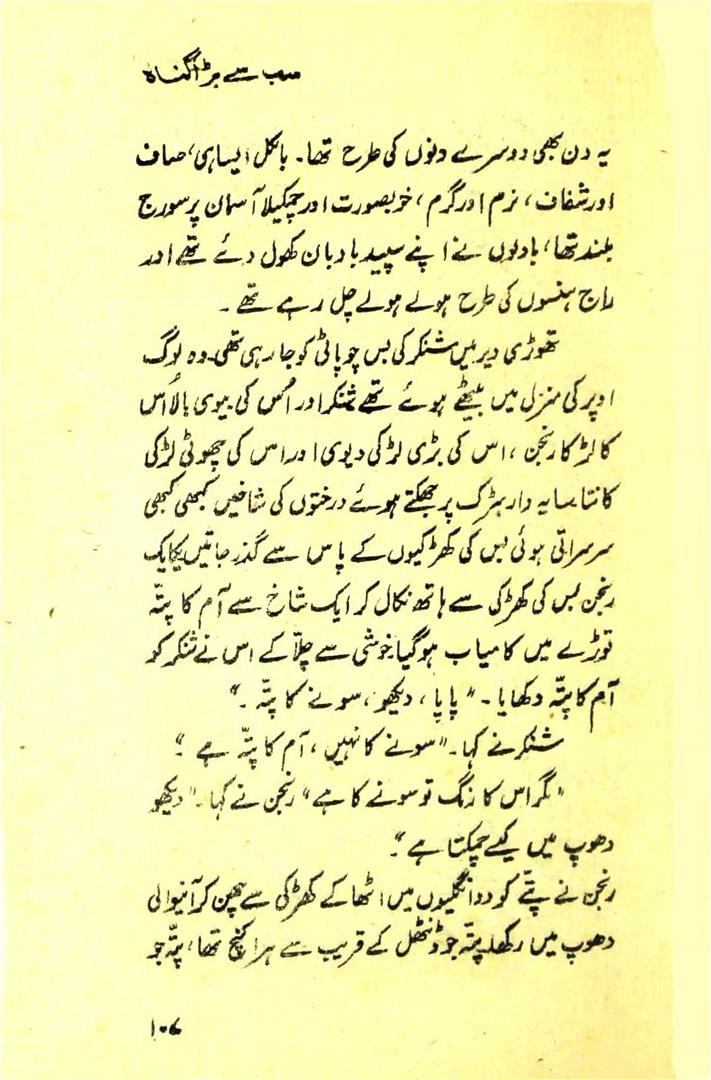 سب سے بڑا گناہ
یہ دن بھی دوسرے دنوں کی طرح تھا۔ بالکل ایسا ہی، صاف
اور شفاف، نرم اور گرم، خوبصورت اور چمکیلا آسمان پر سورج
بلند تھا، بادلوں نے اپنے سپید بادبان کھول دئے تھے اور
راج ہنسوں کی طرح ہولے ہولے چل رہے تھے۔
تھوڑی دیر میں شنکر کی بس چوپاٹی کو جا رہی تھی۔ وہ لوگ
اوپر کی منزل میں بیٹھے ہوئے تھے شنکر اور اُس کی بیوی بالا اُس
کا لڑکا رنجن، اس کی بڑی لڑکی دیوی اور اس کی چھوٹی لڑکی
کانتا سایہ دار سڑک پر جھکتے ہوئے درختوں کی شاخیں کبھی کبھی
سرسراتی ہوئی بس کی کھڑکیوں کے پاس سے گذر جاتیں یکایک
رنجن بس کی کھڑکی سے ہاتھ نکال کر ایک شاخ سے آم کا پتّہ
توڑے میں کامیاب ہوگیا خوشی سے چلّا کے اس نے شنکر کو
آم کا پتّہ دکھایا۔ "پاپا، دیکھو، سونے کا پتّہ۔"
شنکر نے کہا۔ "سونے کا نہیں، آم کا پتّہ ہے۔"
"مگر اس کا رنگ تو سونے کا ہے" رنجن نے کہا۔ "دیکھو
دھوپ میں کیسے چمکتا ہے"۔
رنجن نے پتّے کو دو انگلیوں میں اٹھا کے کھڑکی سے چھن کر آنیوالی
دھوپ میں رکھا۔ پتّہ جو ڈنٹھل کے قریب سے ہرا کنچ تھا، پتّہ جو
۱۰۶